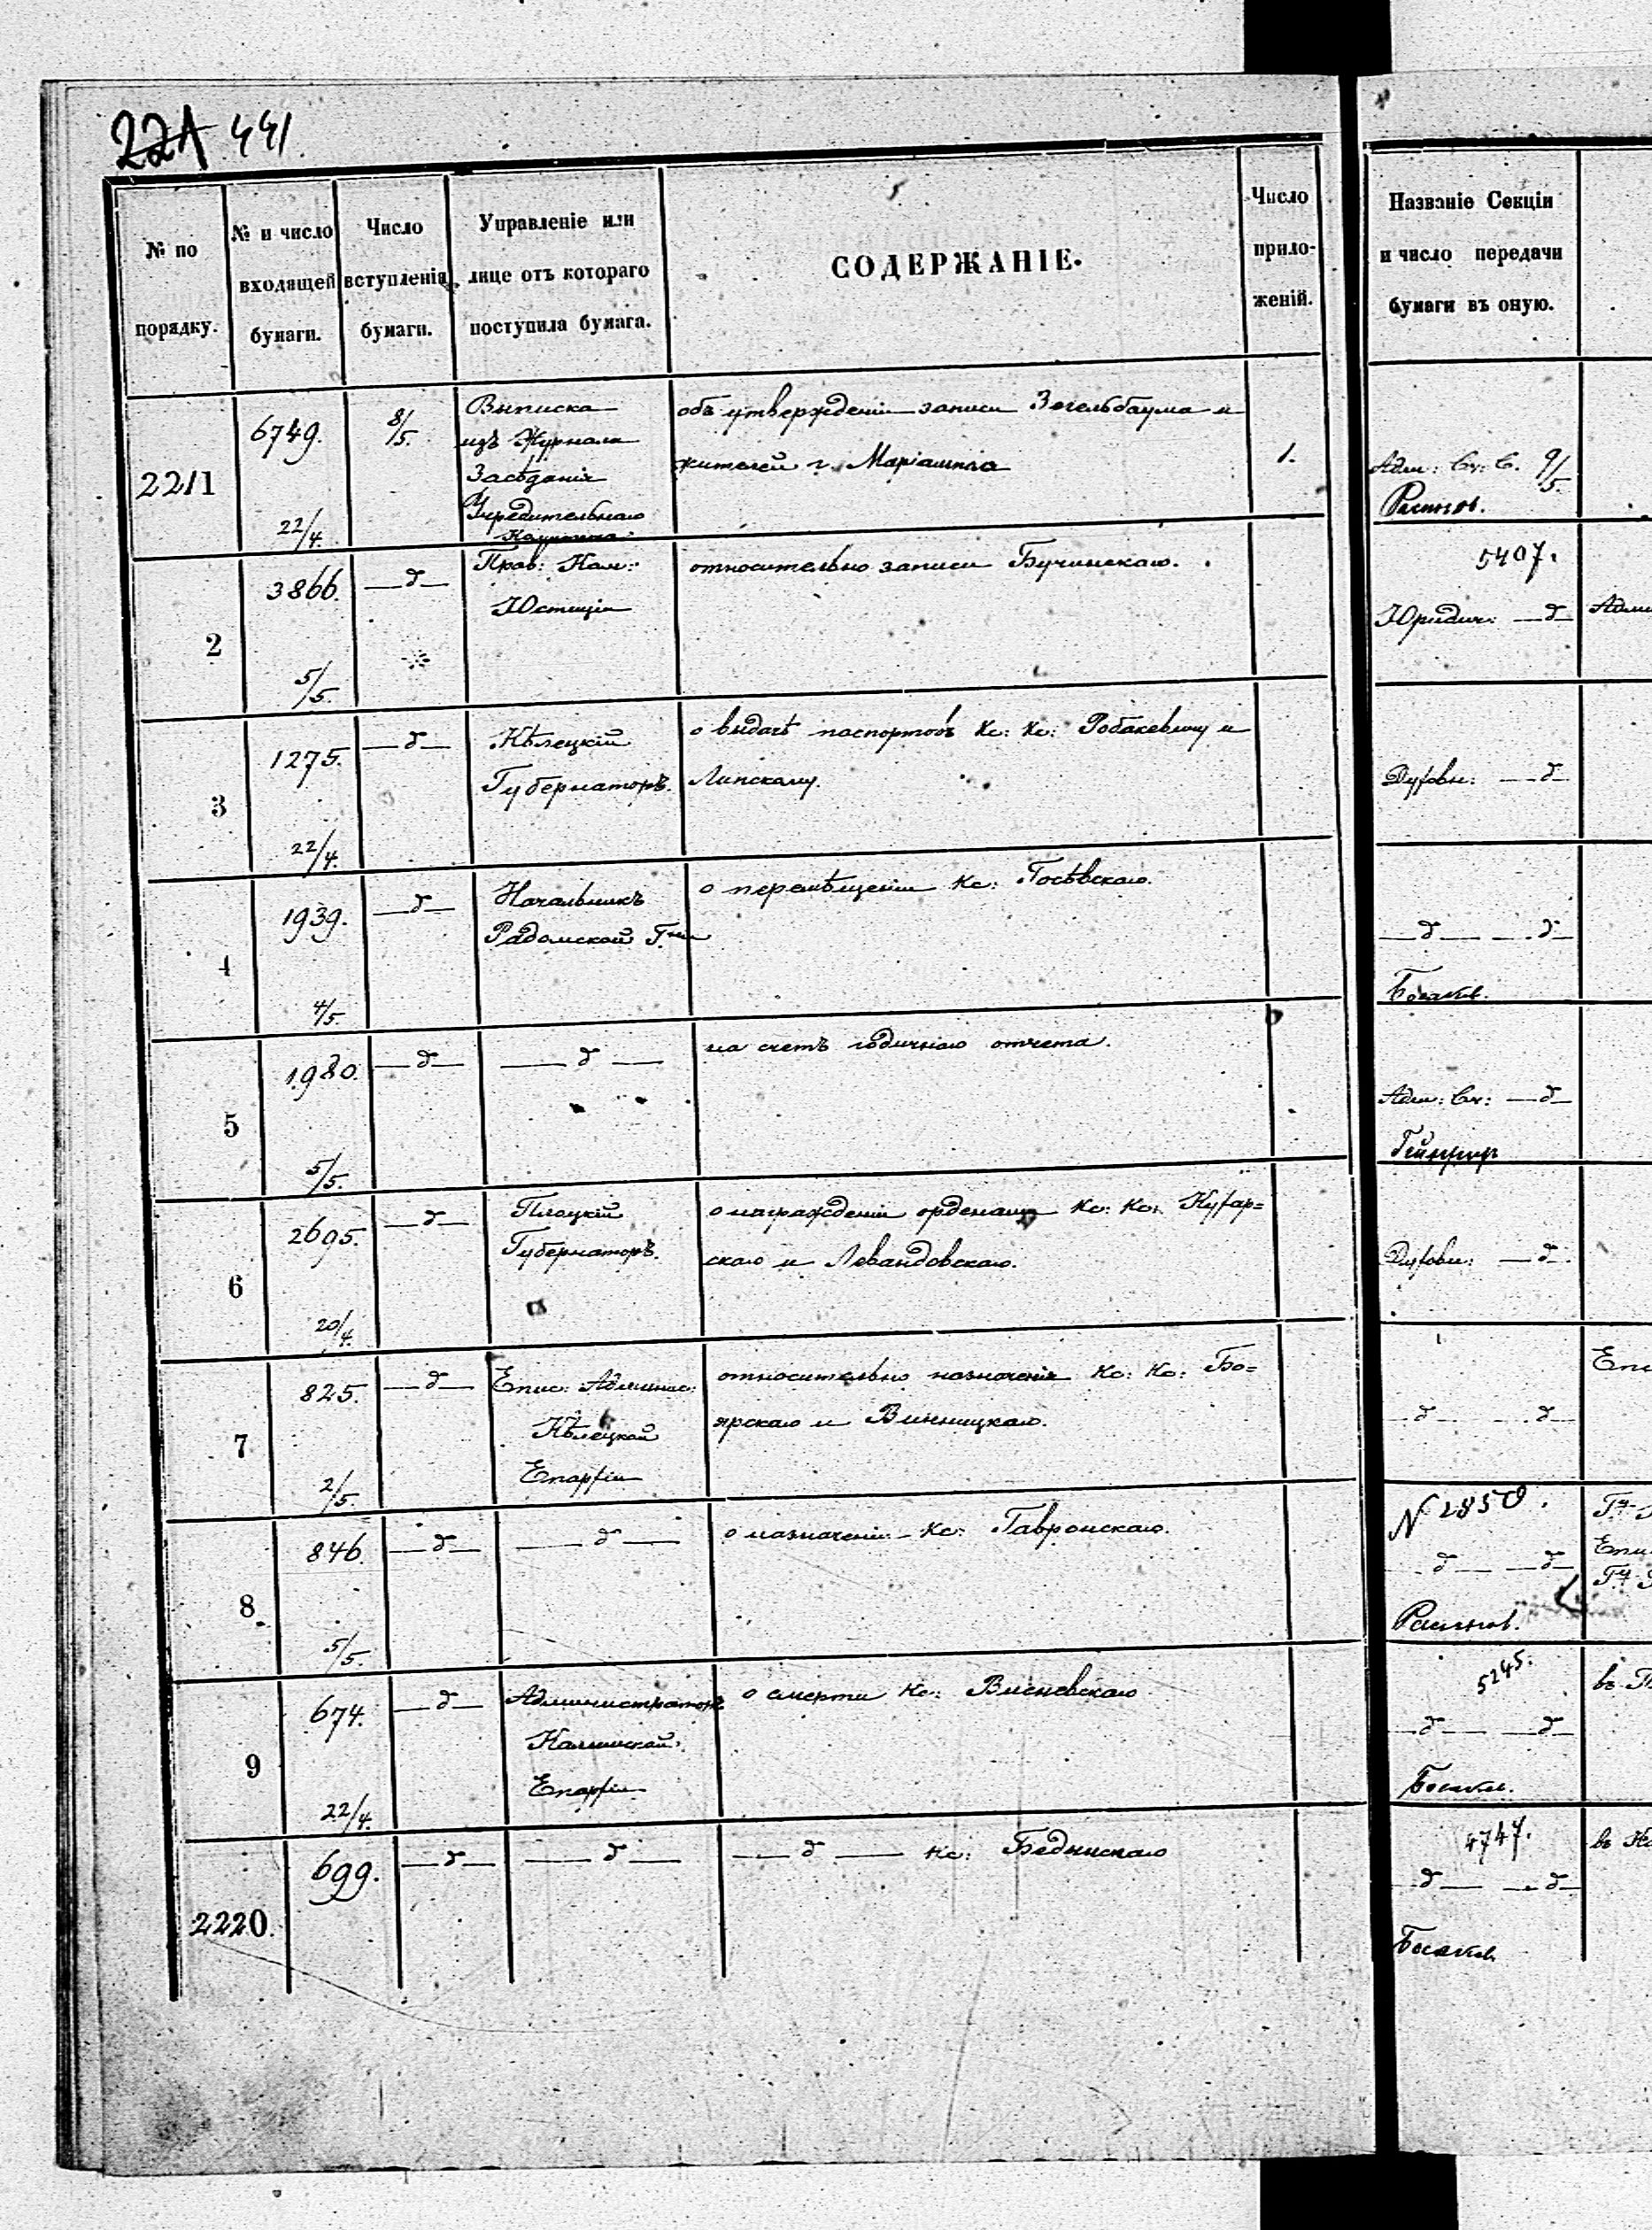 221 441
№ по порядку.
№ и число входящей бумаги.
Число вступленія бумаги.
Управленіе или лице отъ котораго поступила бумага.
СОДЕРЖАНІЕ.
Число приложеній.
Названіе Секціи и число передачи бумаги въ оную.
2211
6749.
22/4.
8/5.
Выписка
изъ Журнала
Засѣданія
Учредительнаго
Комитета
объ утвержденіи записи Зегельбаума и
жителей г.
1.
Адм: Сч: С. 9/5.
2
3866.
5/5.
—д—
Прав: Ком:
Юстиціи
относительно записи Бучинскаго.
5407.
Юридич: —д—
3
1275.
22/4.
—д—
Кѣлецкій
Губернаторъ.
о выдачѣ паспортовъ Кс: Кс: Робакевичу и
Липскому.
Духовн: —д—
4
1939.
4/5.
—д—
Начальникъ
Радомской Г-ніи
о перемѣщеніи Кс: Госѣвскаго.
—д— —д—
5
1980.
5/5.
—д—
—д—
на счетъ годичнаго отчета.
Адм: Сч: —д—
6
2695.
20/4.
—д—
Плоцкій
Губернаторъ.
о награжденіи орденами Кс: Кс: Кухар=
скаго и Левандовскаго.
Духовн: —д—
7
825.
2/5.
—д—
Епис: Админис:
Кѣлецкой
Епархіи
относительно назначенія Кс: Кс: Бо=
ярскаго и Винницкаго.
—д— —д—
8
846.
5/5.
—д—
—д—
о назначеніи Кс: Гавронскаго.
N 2850.
—д— —д—
9
674.
22/4.
—д—
Администраторъ
Калишской
Епархіи
о смерти Кс: Висневскаго
5245.
—д— —д—
2220.
699.
—д—
—д—
—д— Кс: Беднискаго
4747.
—д— —д—